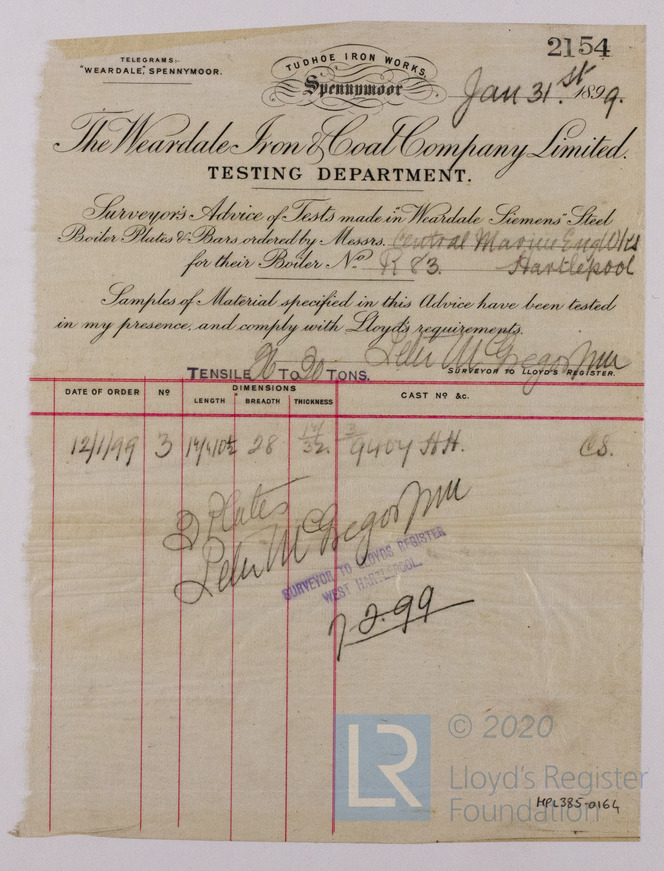 2154
TELEGRAMS:-
"WEARDALE," SPENNYMOOR.
TUDHOE IRON WORKS,
Spennymoor
Jan 31.st 1899.
The Weardale Iron & Coal Company Limited.
TESTING DEPARTMENT.
Surveyor's Advice of Tests made in "Weardale Siemens" Steel
Boiler Plates & Bars ordered by Messrs. Central Marine Eng Wks
for their Boiler No. K 83. Hartlepool
Samples of Material specified in this Advice have been tested
in my presence, and comply with Lloyd's requirements.
SURVEYOR TO LLOYD'S REGISTER.
TENSILE 26 TO 30 TONS.
DATE OF ORDER No DIMENSIONS CAST No &c.
LENGTH BREADTH THICKNESS
12/1/99 3 28 32 HH. CS.
3 Plates
SURVEYOR TO LLOYDS REGISTER
WEST HARTLEPOOL.
7-2-99
LR
© 2020
Lloyd's Register
Foundation
HPL385-0164